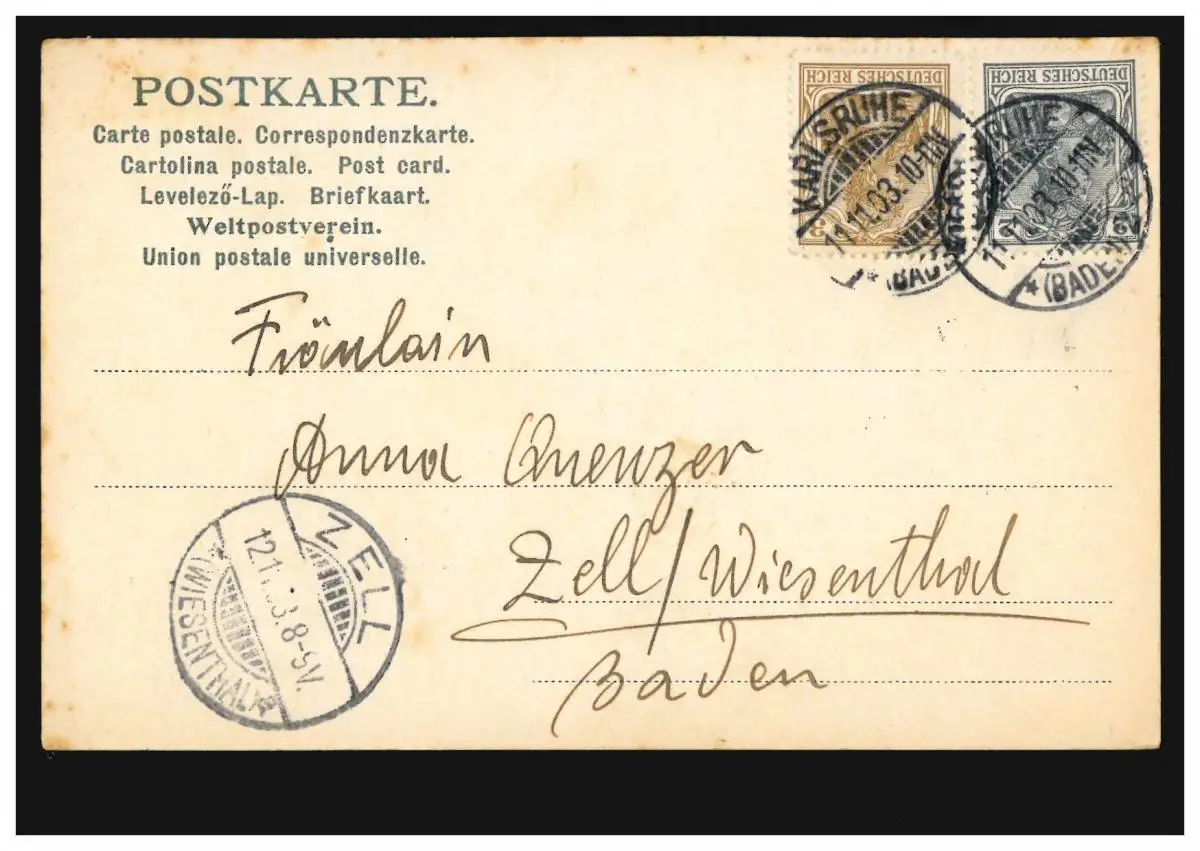 POSTKARTE.
Carte postale. Correspondenzkarte.
Cartolina postale. Post card.
Levelező-Lap. Briefkaart.
Weltpostverein.
Union postale universelle.
DEUTSCHES REICH
3
DEUTSCHES REICH
2
KARLSRUHE
11.11.03.10-11N
*(BADEN)
KARLSRUHE
11.11.03.10-11N
*(BADEN)2
Fräulein
Anna Quenzer
Zell/Wiesenthal
Baden
ZELL
12.11.03.8-9V.
(WIESENTHAL)